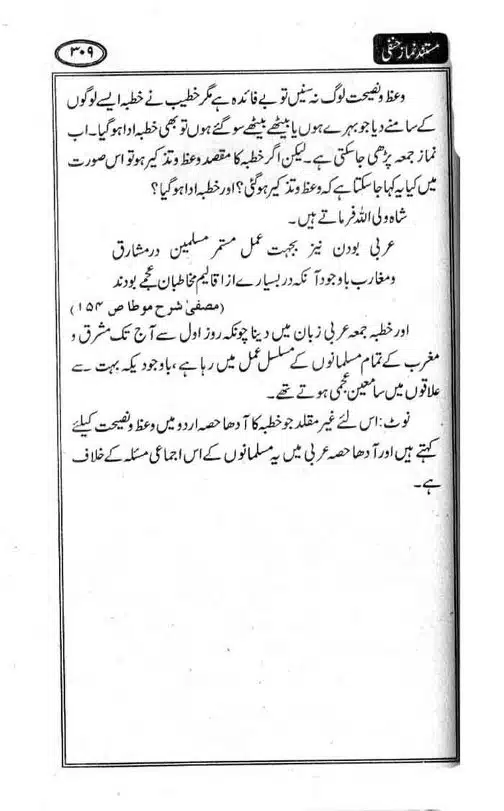 مستند نماز حنفی
۳۰۹
وعظ و نصیحت لوگ نہ سنیں تو بے فائدہ ہے مگر خطیب نے خطبہ ایسے لوگوں
کے سامنے دیا جو بہرے ہوں یا بیٹھے بیٹھے سو گئے ہوں تو بھی خطبہ ادا ہو گیا۔ اب
نماز جمعہ پڑھی جا سکتی ہے۔ لیکن اگر خطبہ کا مقصد وعظ و تذکیر ہو تو اس صورت
میں کیا یہ کہا جا سکتا ہے کہ وعظ و تذکیر ہو گئی؟ اور خطبہ ادا ہو گیا؟
شاہ ولی اللہ فرماتے ہیں۔
عربی بودن نیز بجہت عمل مستمر مسلمین در مشارق
و مغارب باوجود آنکہ در بسیارے از اقالیم مخاطبان عجمے بودند
(مصفیٰ شرح موطا ص ۱۵۴)
اور خطبہ جمعہ عربی زبان میں دینا چونکہ روز اول سے آج تک مشرق و
مغرب کے تمام مسلمانوں کے مسلسل عمل میں رہا ہے، باوجودیکہ بہت سے
علاقوں میں سامعین عجمی ہوتے تھے۔
نوٹ: اس لئے غیر مقلد جو خطبہ کا آدھا حصہ اردو میں وعظ و نصیحت کیلئے
کہتے ہیں اور آدھا حصہ عربی میں یہ مسلمانوں کے اس اجماعی مسئلہ کے خلاف
ہے۔